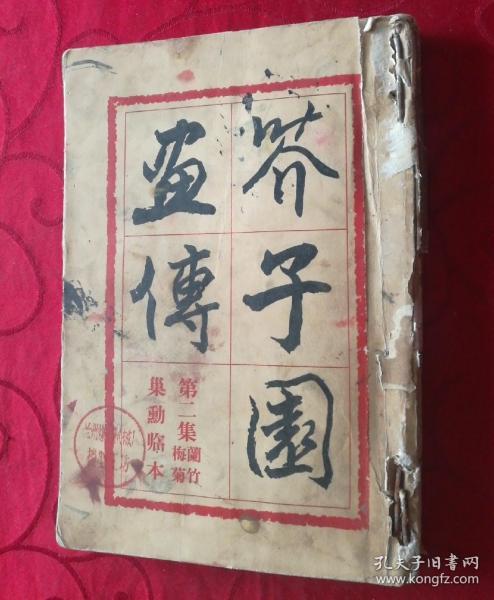 芥子園
畫傳
第二集
蘭竹
梅菊
巢勳臨本
孔夫子旧书网
www.kongfz.com